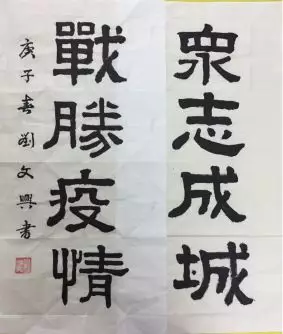 眾志成城
戰勝疫情
庚子春劉文興書